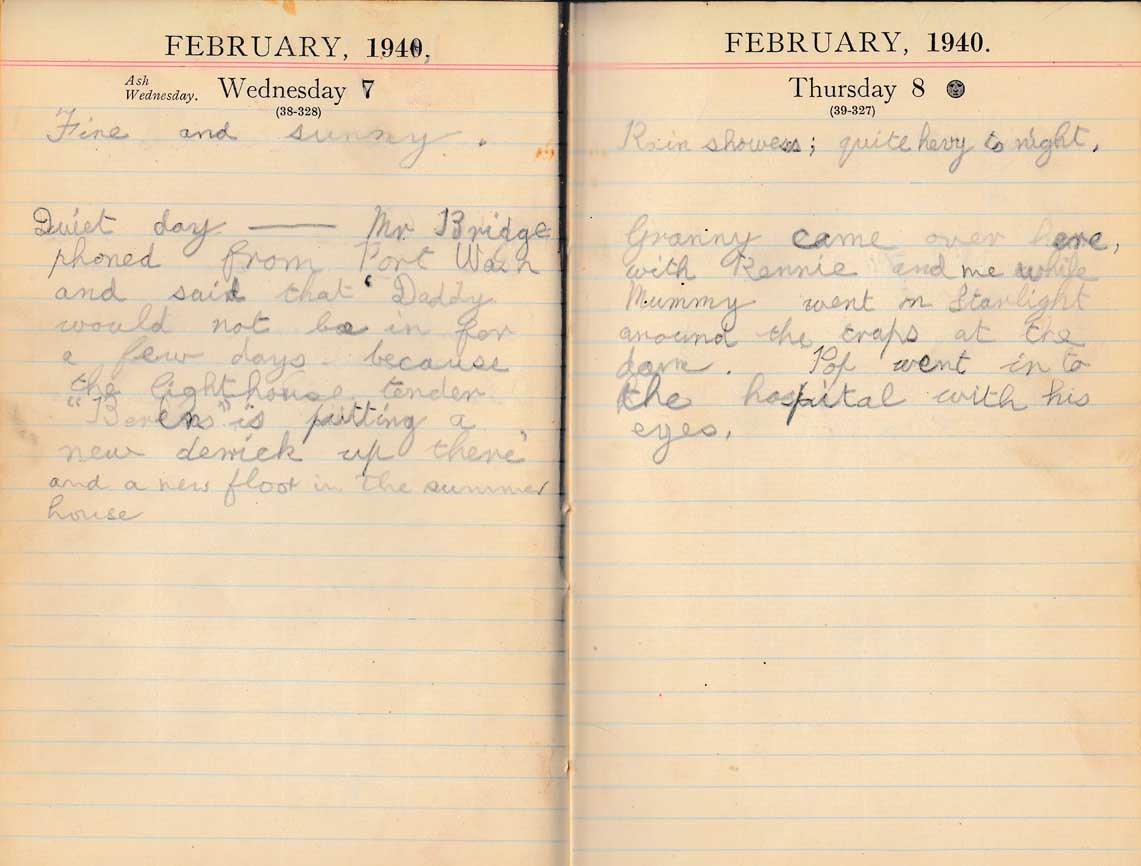 FEBRUARY, 1940,
Ash
Wednesday.
Wednesday 7
(38-328)
Fine and sunny .
Quiet day —— Mr Bridge
phoned from Port Wash
and said that ‘ Daddy
would not be in for
a few days because
the lighthouse tender
"Berens" is putting a
new derrick up there’
and a new floor in the summer
house
FEBRUARY, 1940.
Thursday 8
(39-327)
Rain showers; quite hevy to night.
Granny came over here,
with Rennie and me while
Mummy went on Starlight
around the traps at the
dam. Pop went in to
the hospital with his
eyes.